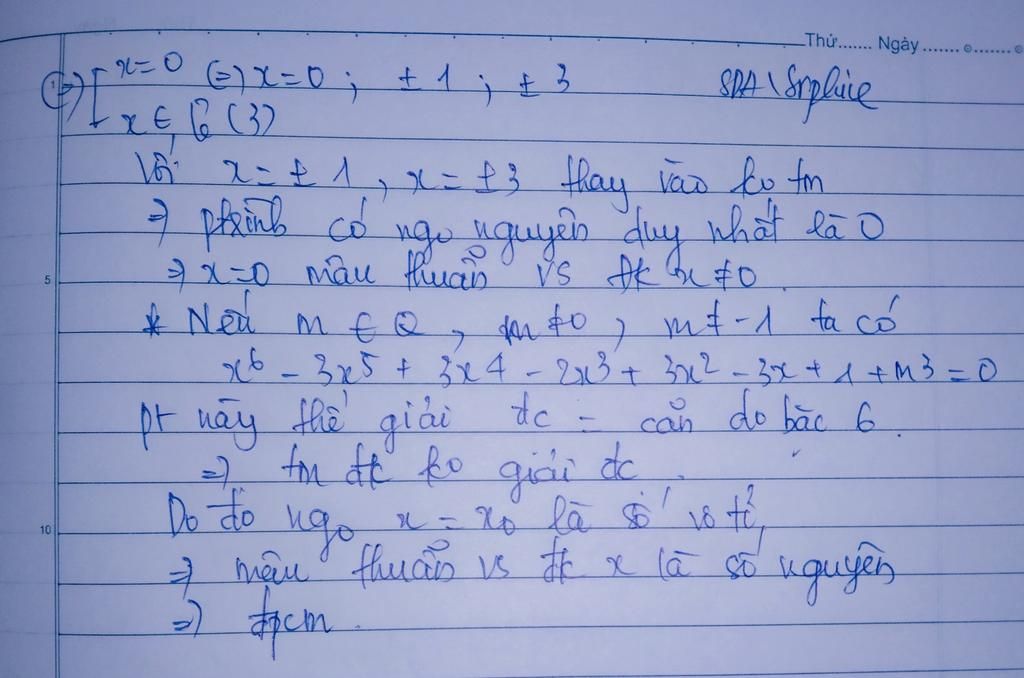 Thứ....... Ngày.......
(=) [ x=0 (=) x=0 ; ±1 ; ±3
x ∈ Ư(3)
Với x=±1, x=±3 thay vào ko tm
=) ptrình có ngo nguyên duy nhất là 0
=) x=0 mâu thuẫn vs đk x≠0.
5
* Nếu m ∈ Q, m≠0, m≠-1 ta có
x6 - 3x5 + 3x4 - 2x3 + 3x2 - 3x + 1 + m3 = 0
pt này thể giải đc = căn do bậc 6.
=) tm đk ko giải đc.
10
Do đó ngo x = x0 là số vô tỉ,
=) mâu thuẫn vs đk x là số nguyên
=) đpcm.